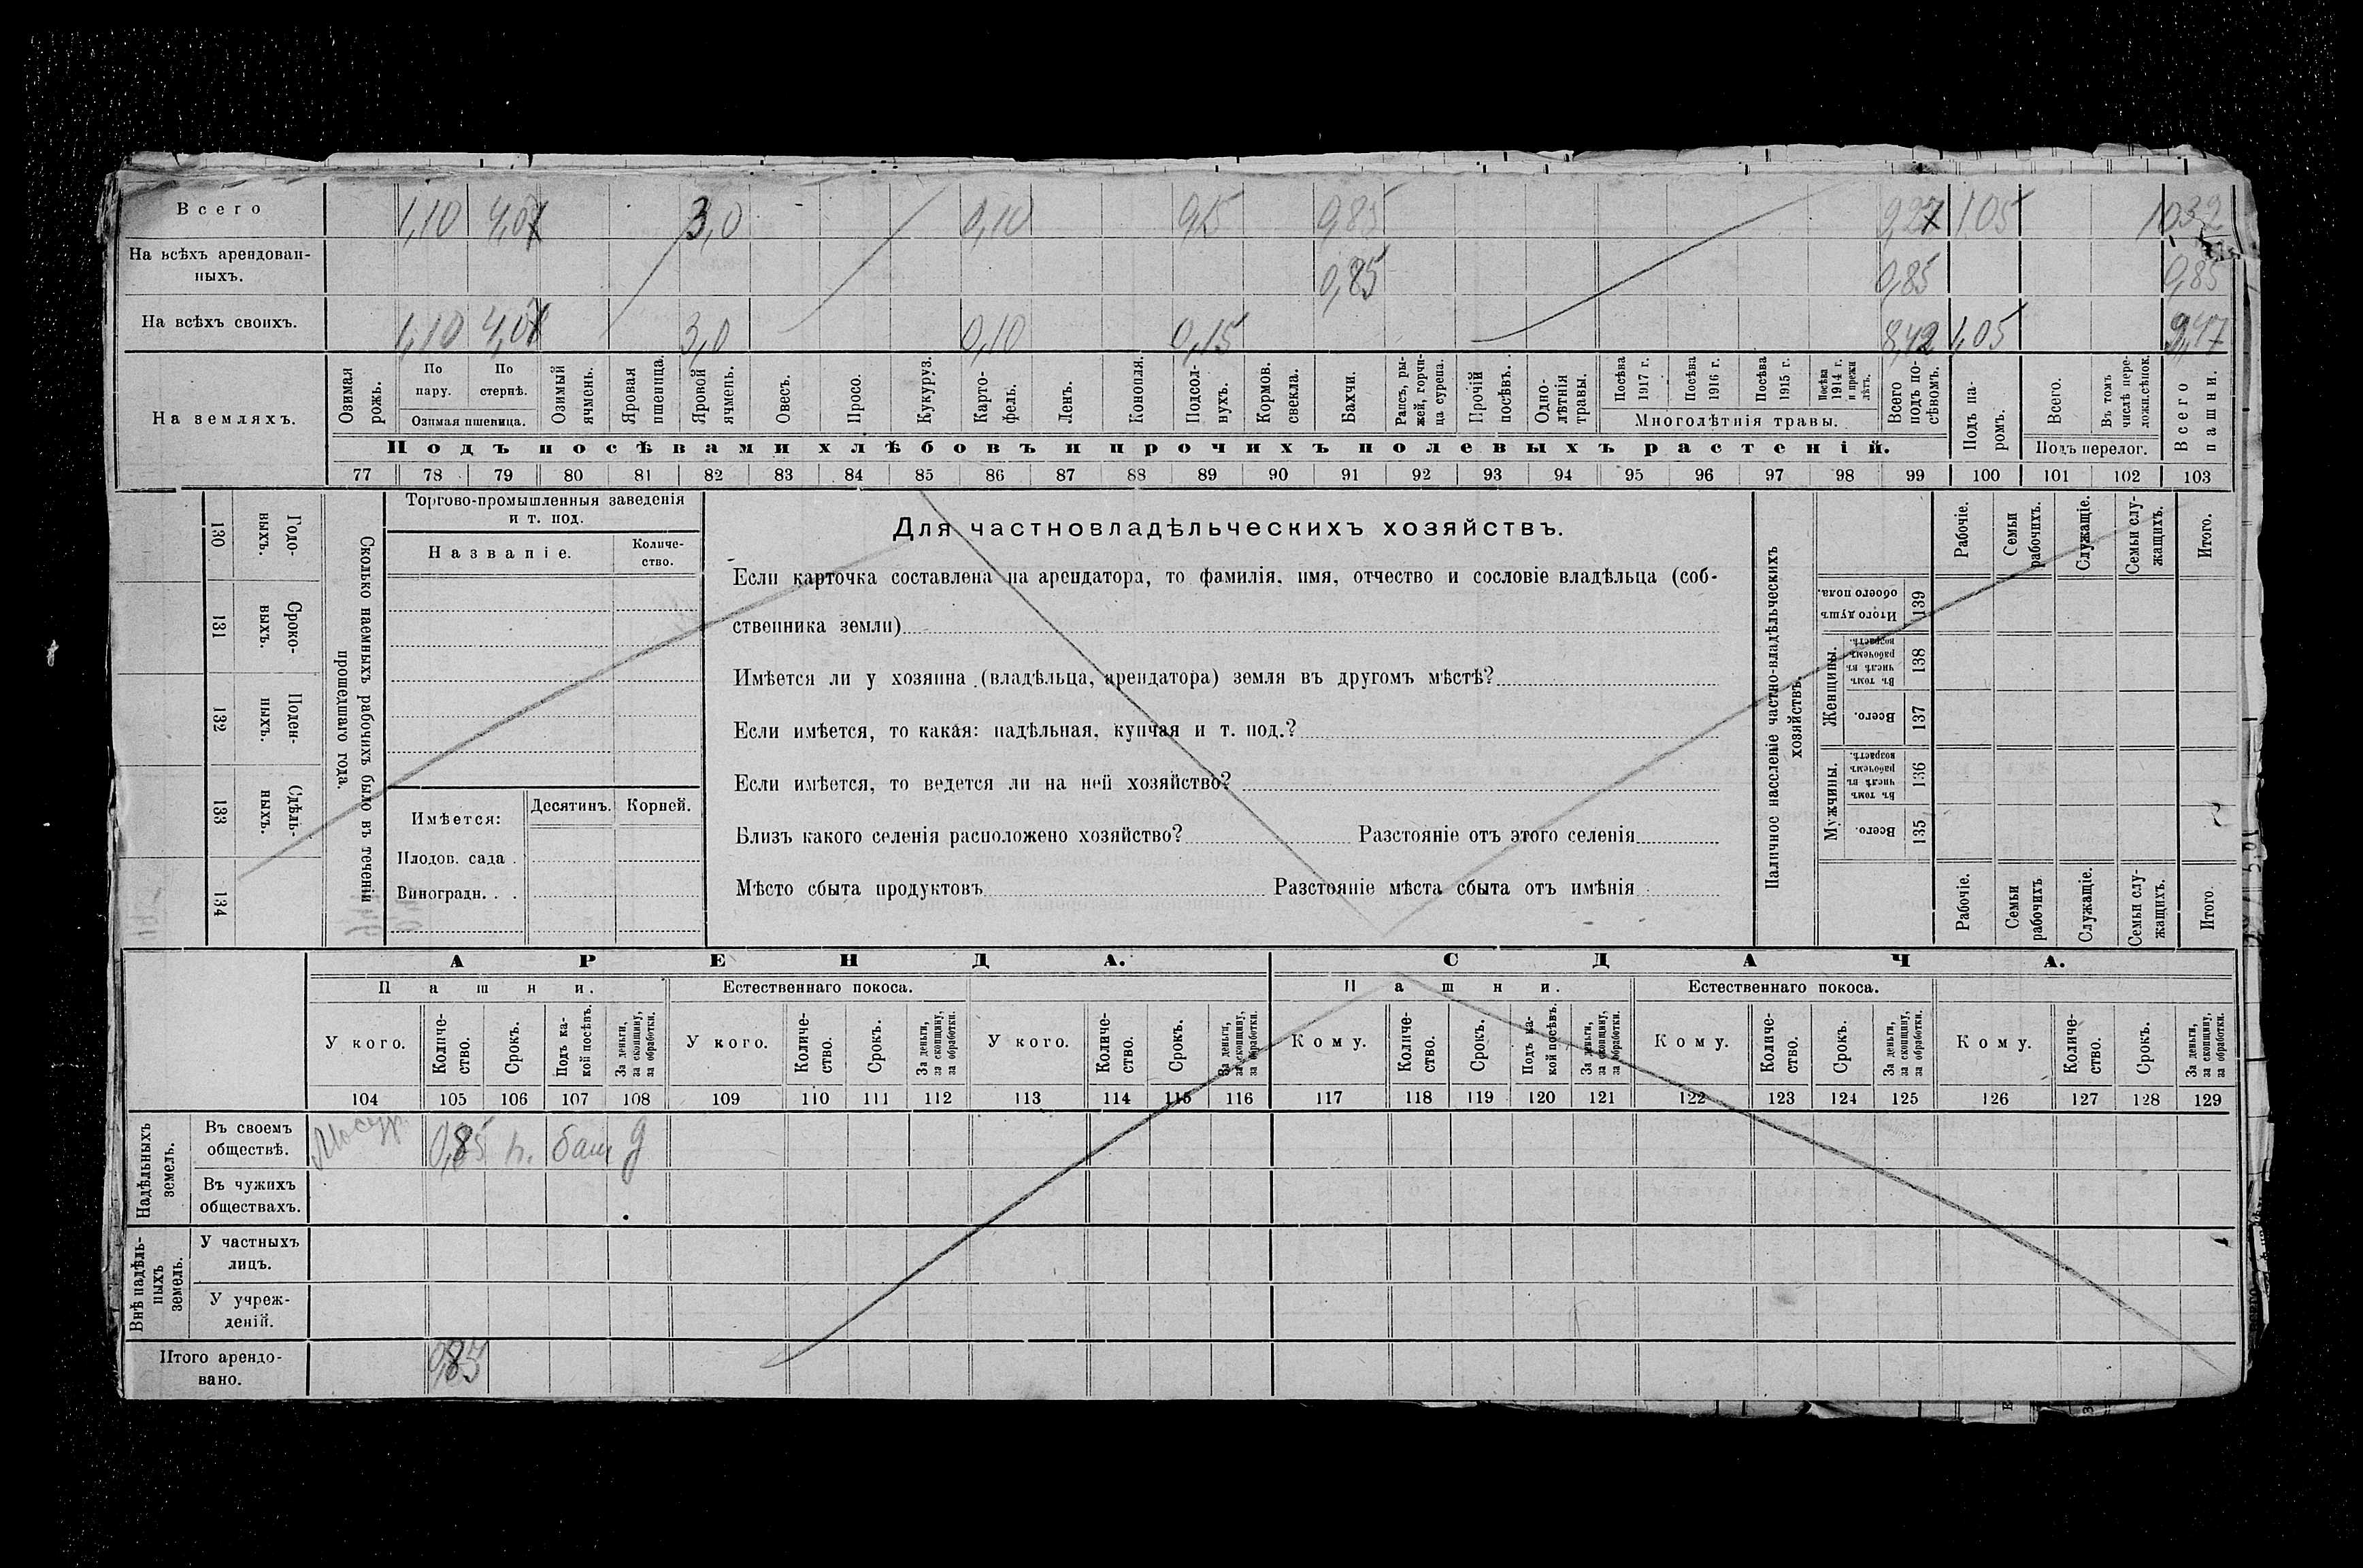 Всего 1,10 4,07 3,0 0,10 0,15 0,85 9,27 1,05 10,32
На всѣхъ арендован-
ныхъ. 0,85 0,85 0,85
На всѣхъ своихъ. 1,10 4,07 3,0 0,10 0,15 8,42 1,05 9,47
На земляхъ.
Озимая рожь.
По пару.
По стернѣ.
Озимая пшеница.
Озимый ячмень.
Яровая пшеница.
Яровой ячмень.
Овесъ.
Просо.
Кукуруз.
Карто-
фель.
Ленъ.
Конопля.
Подсол-
нухъ.
Кормов.
свекла.
Бахчи.
Рапсъ, ры-
жей, горчи-
ца сурепа.
Прочій
посѣвъ.
Одно-
лѣтнія
травы.
Посѣва
1917 г.
Посѣва
1916 г.
Посѣва
1915 г.
Посѣва
1914 г.
и прежн
лѣтъ.
Многолѣтнія травы.
Всего
подъ по-
сѣвомъ.
Подъ па-
ромъ.
Всего.
Въ томъ
числѣ пере-
ложн.сѣнок.
Подъ перелог.
Всего
пашни.
Подъ посѣвами хлѣбовъ и прочихъ полевыхъ растеній.
77 78 79 80 81 82 83 84 85 86 87 88 89 90 91 92 93 94 95 96 97 98 99 100 101 102 103
130 Годо-
выхъ.
131 Сроко-
выхъ.
132 Поден-
ныхъ.
133 Сдѣль-
ныхъ.
134
Сколько наемныхъ рабочихъ было въ теченіи
прошедшаго года.
Торгово-промышленныя заведенія
и т. под.
Названіе.
Количе-
ство.
Имѣется:
Десятинъ.
Корней.
Плодов. сада .
Виноградн. . .
Для частновладѣльческихъ хозяйствъ.
Если карточка составлена на арендатора, то фамилія, имя, отчество и сословіе владѣльца (соб-
ственника земли)
Имѣется ли у хозяина (владѣльца, арендатора) земля въ другомъ мѣстѣ?
Если имѣется, то какая: надѣльная, купчая и т. под.?
Если имѣется, то ведется ли на ней хозяйство?
Близъ какого селенія расположено хозяйство? Разстояніе отъ этого селенія
Мѣсто сбыта продуктовъ Разстояніе мѣста сбыта отъ имѣнія
Наличное населеніе частно-владѣльческихъ
хозяйствъ.
Рабочіе.
Семьи
рабочихъ.
Служащіе.
Семьи слу-
жащихъ.
Итого.
Итого душъ
обоего пола.
139
Женщины.
Въ томъ
числѣ въ
рабочемъ
возрастѣ.
138
Всего.
137
Мужчины.
Въ томъ
числѣ въ
рабочемъ
возрастѣ.
136
Всего.
135
Рабочіе.
Семьи
рабочихъ
Служащіе.
Семьи слу-
жащихъ.
Итого.
АРЕНДА.
СДАЧА.
Пашни.
Естественнаго покоса.
Пашни.
Естественнаго покоса.
У кого.
Количе-
ство.
Срокъ.
Подъ ка-
кой посѣвъ.
За деньги,
за скопщину,
за обработки.
У кого.
Количе-
ство.
Срокъ.
За деньги,
за скопщину,
за обработки.
У кого.
Количе-
ство.
Срокъ.
За деньги,
за скопщину,
за обработки.
Кому.
Количе-
ство.
Срокъ.
Подъ ка-
кой посѣвъ.
За деньги,
за скопщину,
за обработки.
Кому.
Количе-
ство.
Срокъ.
За деньги,
за скопщину,
за обработки.
Кому.
Количе-
ство.
Срокъ.
За деньги,
за скопщину,
за обработки.
104 105 106 107 108 109 110 111 112 113 114 115 116 117 118 119 120 121 122 123 124 125 126 127 128 129
Надѣльныхъ
земель.
Въ своемъ
обществѣ. 0,85 п. баш д
Въ чужихъ
обществахъ.
Внѣ надѣль-
ныхъ
земель.
У частныхъ
лицъ.
У учреж-
деній.
Итого арендо-
вано. 0,85